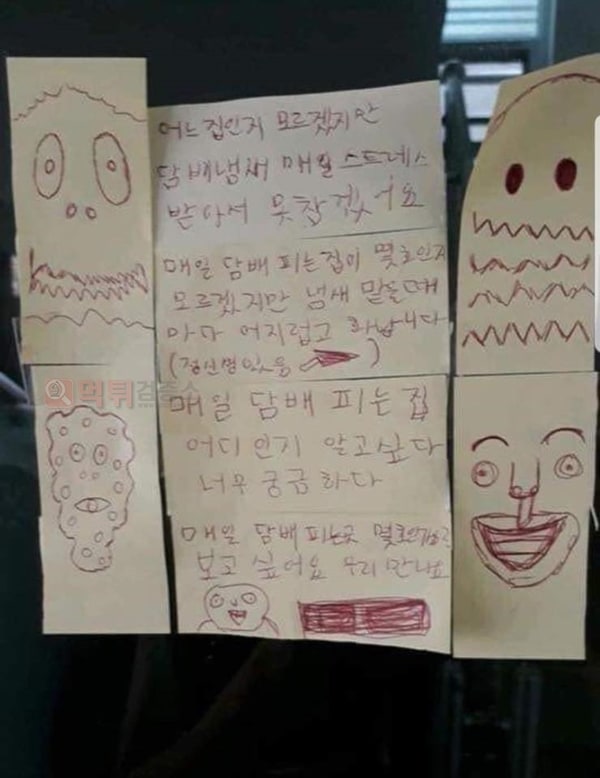 어느집인지 모르겠지만
담배냄새 매일 스트레스
받아서 못참겠어요
매일 담배 피는집이 몇호인지
모르겠지만 냄새 맡을때
마다 어지럽고 화납니다
(정신병있음 )
매일 담배 피는 집
어디인지 알고싶다
너무 궁금하다
매일 담배피는곳
보고싶어요 우리 만나요
먹튀검증소